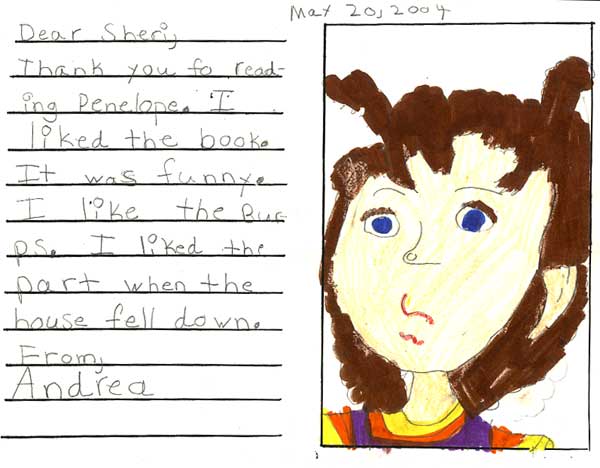 May 20, 2004
Dear Sheri,
Thank you fo read-
ing Penelope. I
liked the book.
It was funny.
I like the Bur-
ps. I liked the
part when the
house fell down.
From,
Andrea